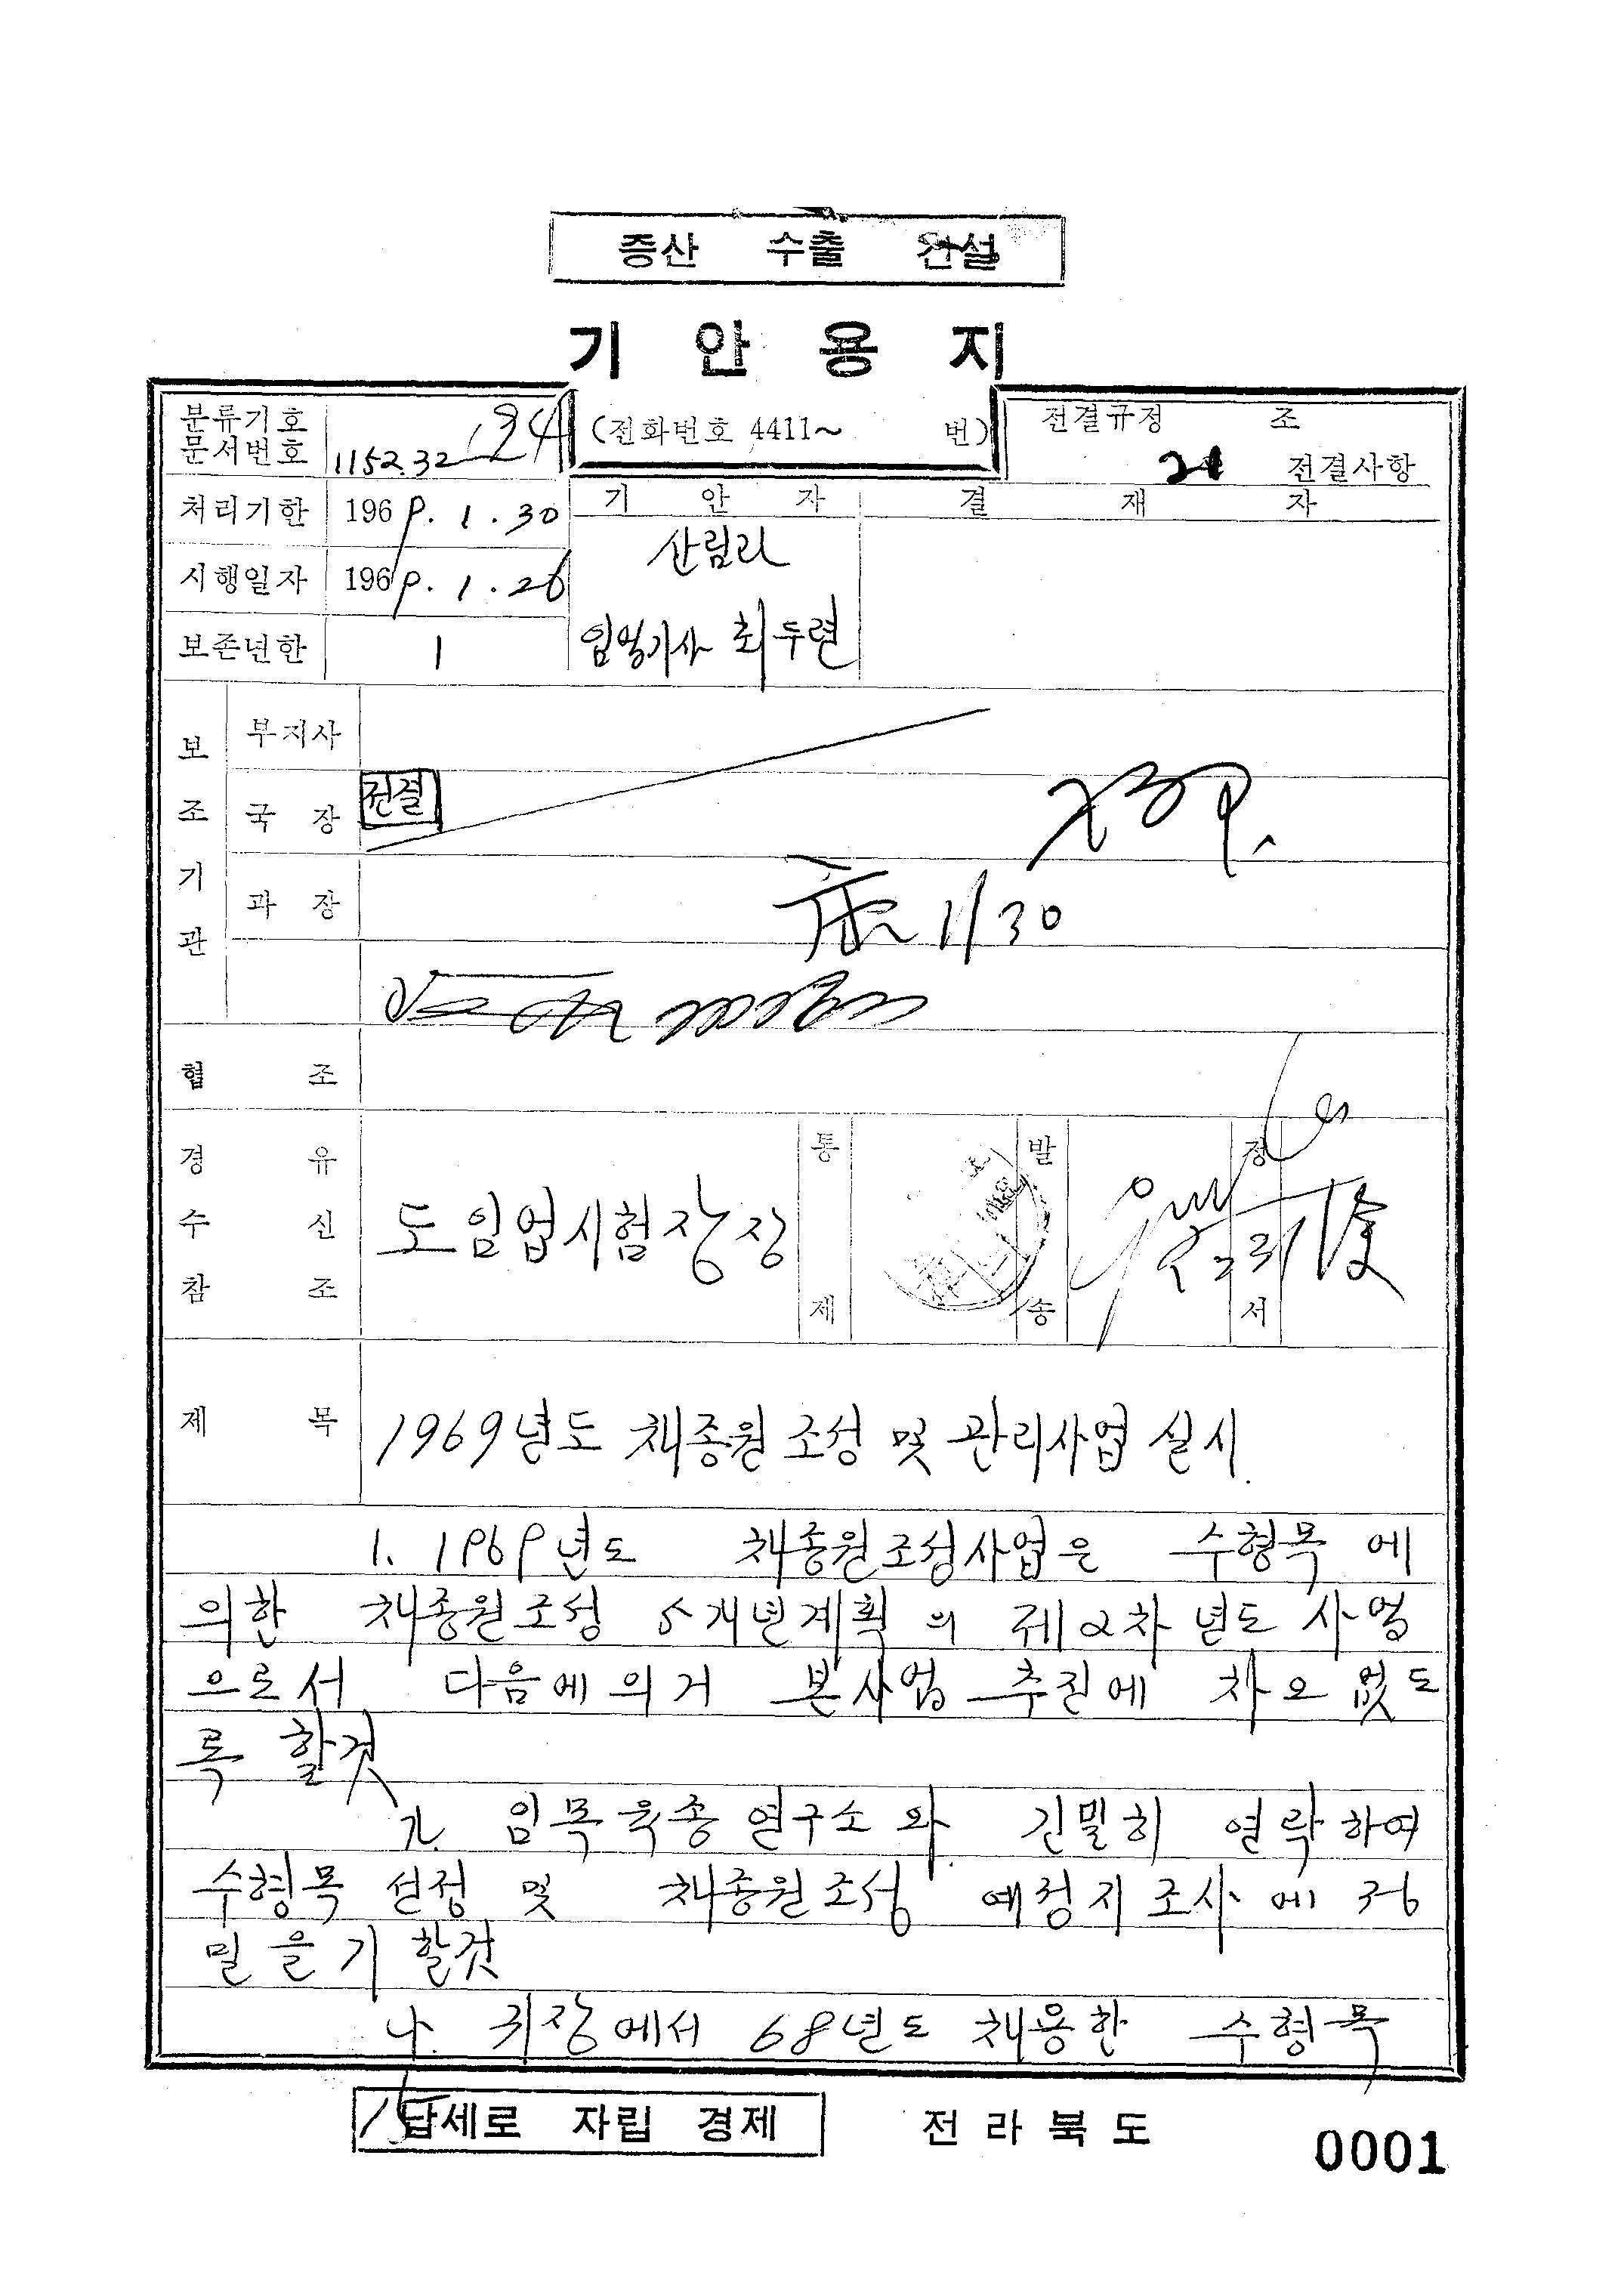 증산 수출 건설
기 안 용 지
분류기호
문서번호 1152.32-
(전화번호 4411~ 번)
전결규정 조
21 전결사항
처리기한 1969. 1. 30
기 안 자
결 재 자
시행일자 1969. 1. 26
산림과
임업기사 최두련
보존년한 1
보조기관
부지사
국 장 전결
과 장 1/30
협 조
경 유
수 신 도임업시험장장
참 조
통 제
발 송
정 서
제 목 1969년도 채종원 조성 및 관리사업 실시.
1. 1969년도 채종원조성사업은 수형목에
의한 채종원조성 5개년계획의 제2차년도 사업
으로서 다음에 의거 본사업 추진에 차오 없도
록 할것
가. 임목육종연구소와 긴밀히 연락하여
수형목 선정 및 채종원조성 예정지조사에 정
밀을 기할것
나. 귀장에서 68년도 채용한 수형목
납세로 자립 경제
전라북도
0001